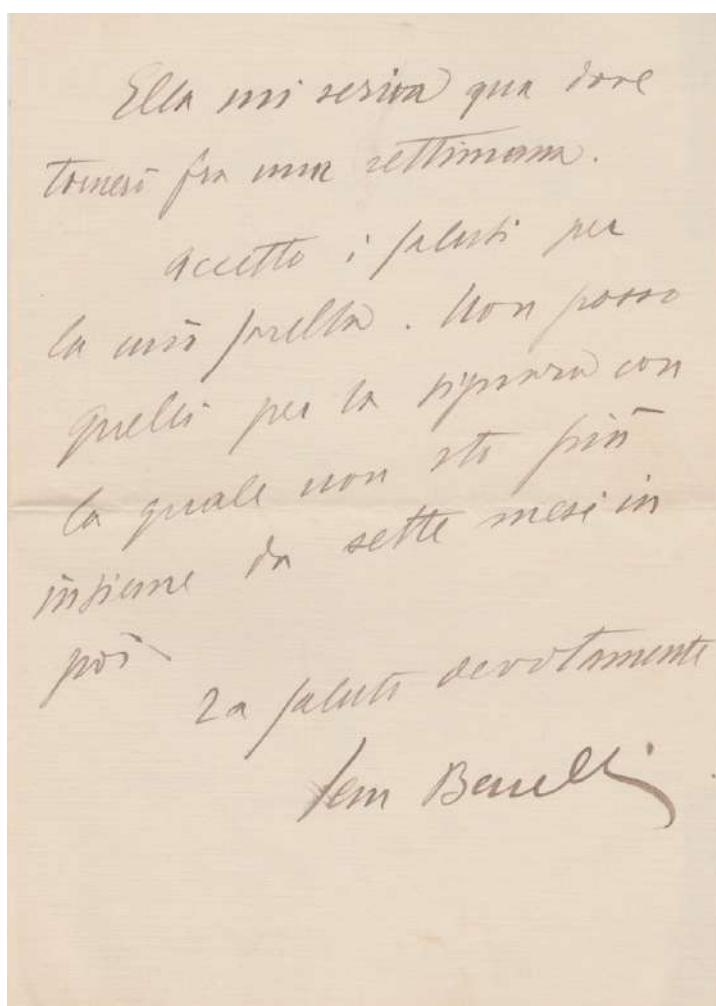 Ella mi scriva qua dove
tornerò fra una settimana.
Accetto i saluti per
la mia sorella. Non posso
quelli per la signora con
la quale non sto più
insieme da sette mesi in
poi
La saluto devotamente
Sem Benelli